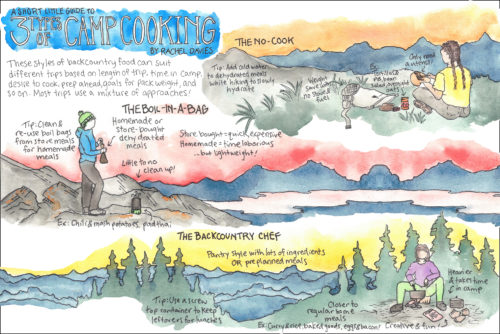 A SHORT LITTLE GUIDE TO
3 TYPES OF CAMP COOKING
BY RACHEL DAVIES
These styles of backcountry food can suit
different trips based on length of trip, time in camp,
desire to cook, prep ahead, goals for pack weight, and
so on. Most trips use a mixture of approaches!
THE NO-COOK
Tip: Add cold water
to dehydrated meals
while hiking to slowly
hydrate
Weight
save with
no stove &
fuel!
Ex:
Only need
a utensil!
THE BOIL-IN-A-BAG
Tip: Clean &
re-use boil bags
from store meals
for homemade
meals
Homemade or
store-bought
dehydrated
meals
Store bought = quick, expensive
Homemade = time laborious
...but lightweight!
Little to no
clean up!
Ex: Chili & mash potatoes, pad thai
THE BACKCOUNTRY CHEF
Pantry style with lots of ingredients
OR pre planned meals
Tip: Use a screw
top container to keep
leftovers for lunches
Closer to
regular home
meals
Heavier
& take time
in camp
Ex: Curry & rice, baked goods, eggs & bacon!
Creative & fun!